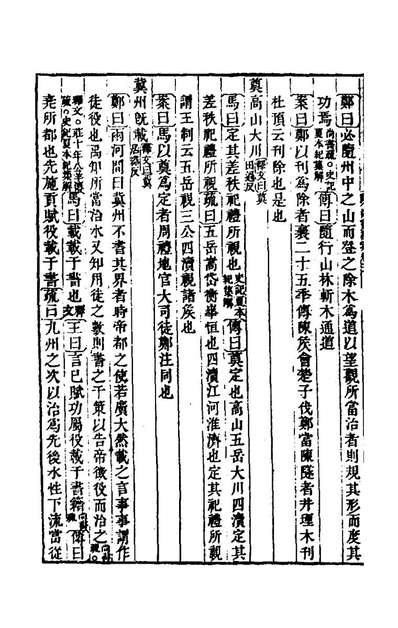 鄭曰必隨州中之山而登之除木為道以望觀所當治者則規其形而度其
功焉尚書疏○史記夏本紀集解傳曰隨行山林斬木通道
案曰鄭以刊為除者襄二十五年傳陳侯會楚子伐鄭當陳隧者井堙木刊
杜預云刊除也是也
奠高山大川釋文曰奠田遍反
馬曰定其差秩祀禮所視也史記夏本紀集解傳曰奠定也高山五岳大川四瀆定其
差秩祀禮所視疏曰五岳嵩岱衡華恒也四瀆江河淮濟也定其祀禮所視
謂王制云五岳視三公四瀆視諸矦也
案曰馬以奠為定者周禮地官大司徒鄭注同也
冀州既載釋文曰冀居器反
鄭曰兩河間曰冀州不書其界者時帝都之使若廣大然載之言事事謂作
徒役也禹知所當治水又知用徒之數則書之于策以告帝徵役而治之尚書
釋文○莊十年公羊疏○史記夏本紀集解馬曰載載于書也釋文王曰言已賦功屬役載于書籍尚書疏傳曰
堯所都也先施貢賦役載于書疏曰九州之次以治為先後水性下流當從